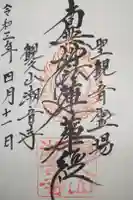 聖観音霊場
南無妙法蓮華経
山潮音寺
令和三年四月十一日